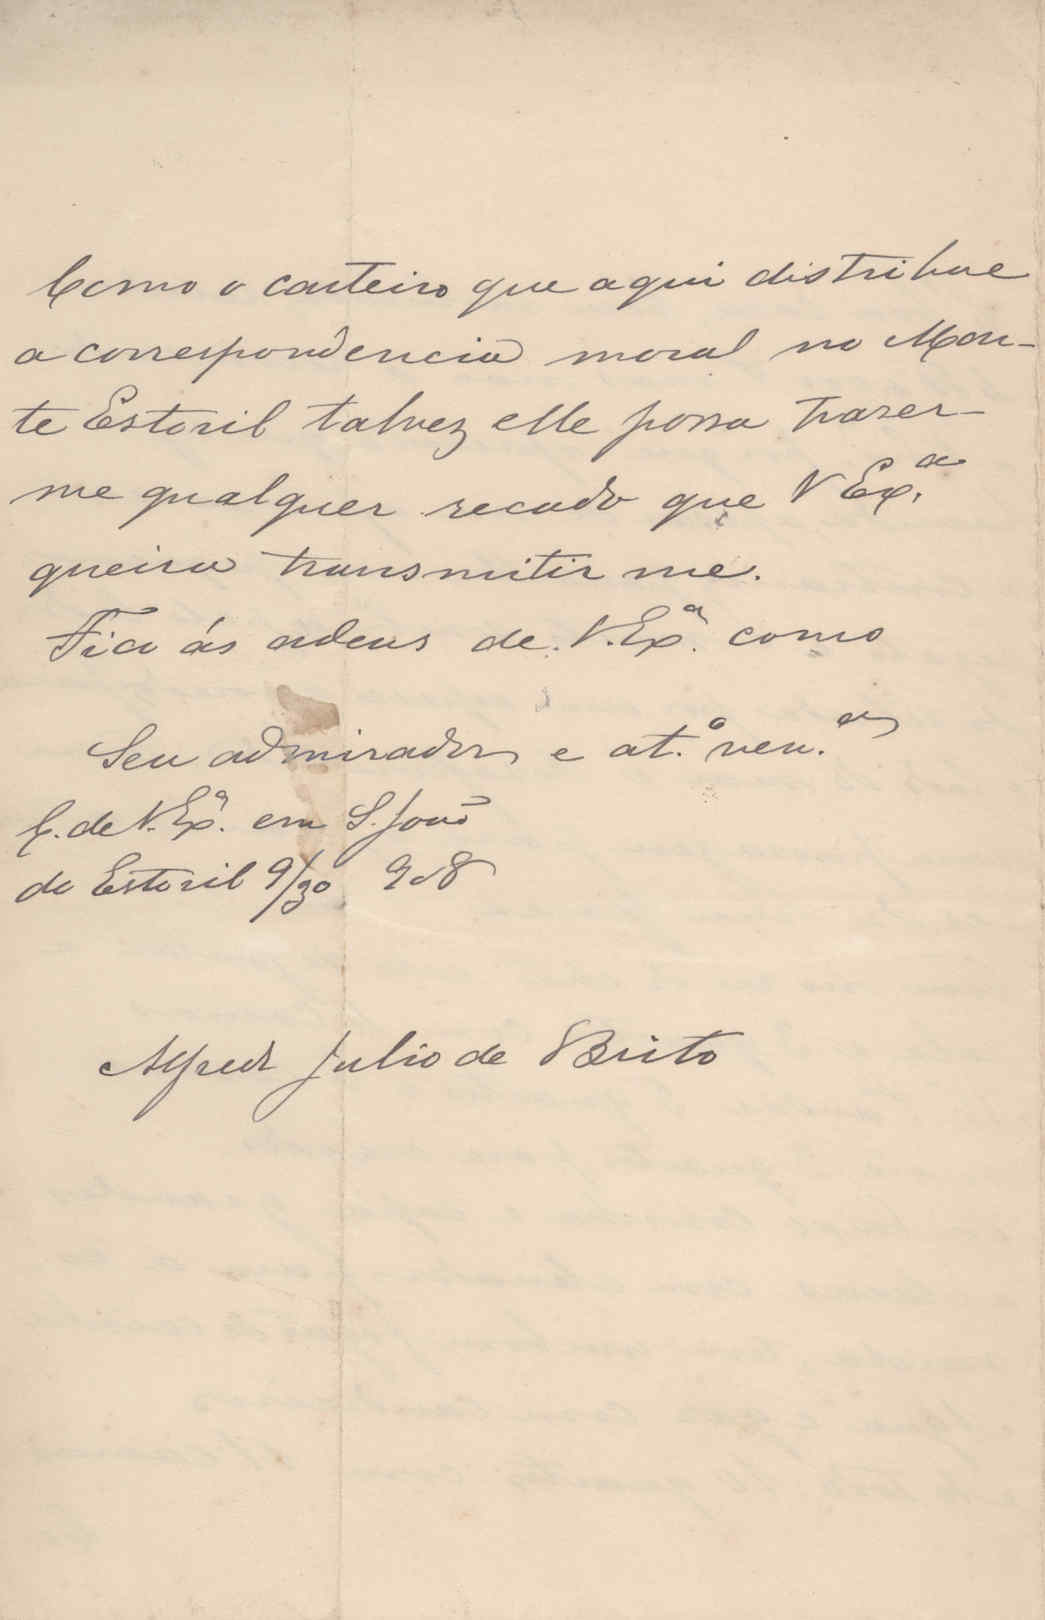 Como o carteiro que aqui distribue
a correspondencia mora no Mon-
te Estoril talvez elle possa trazer-
me qualquer recado que V Ex.ª
queira transmitir me.
Fico ás ordens de V. Exª. como
Seu admirador e at.º ven.or
C. de V. Exª. em S. João
do Estoril 9/30 908
Alfredo Julio de Brito